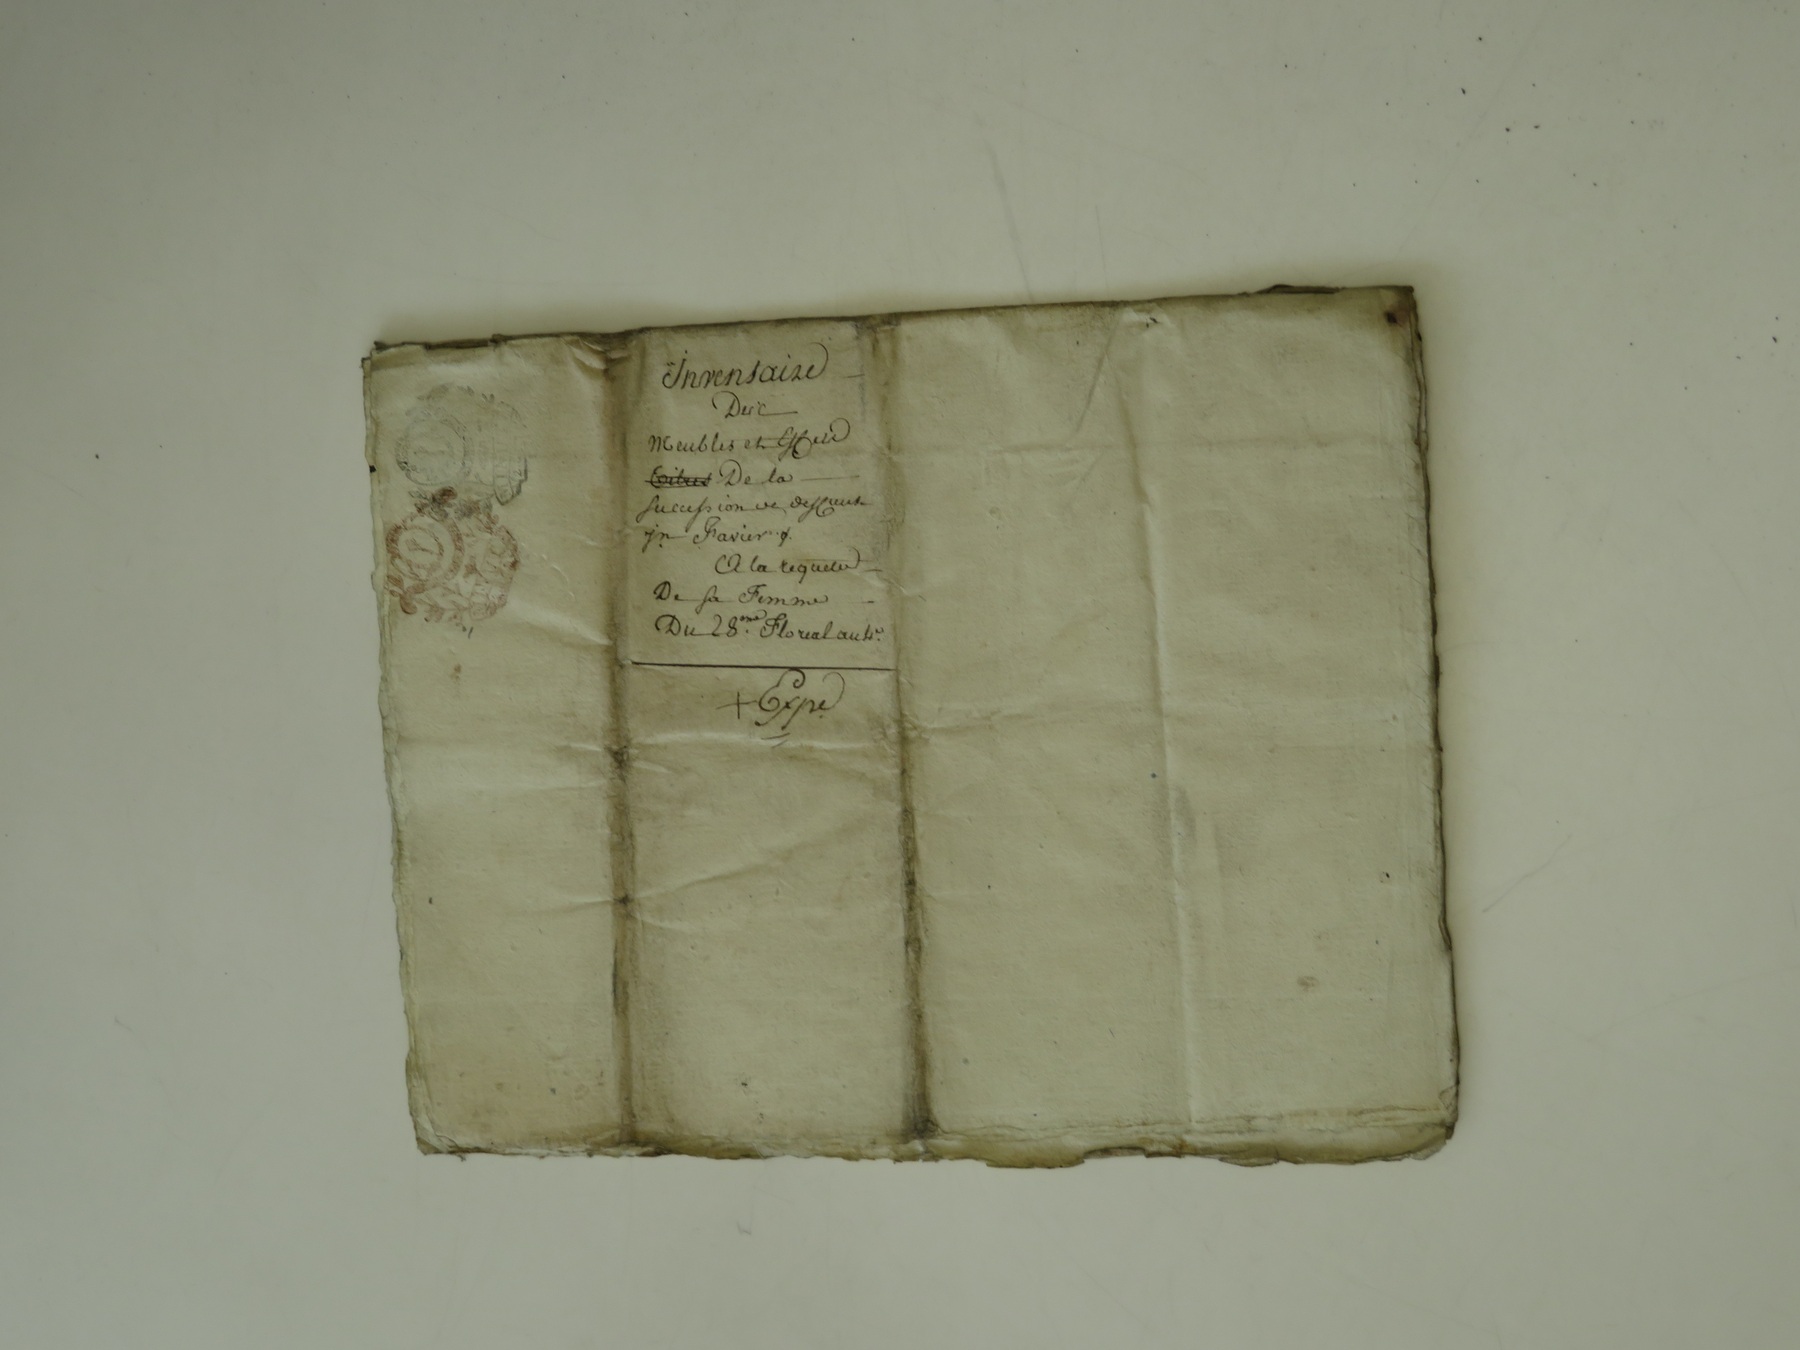 Inventaire
Des
Meubles et Effets
De la
Succession de deffunt
jn Favier
A la requete
De sa Femme
Du 28.me Floreal an 4e.
+ Expé